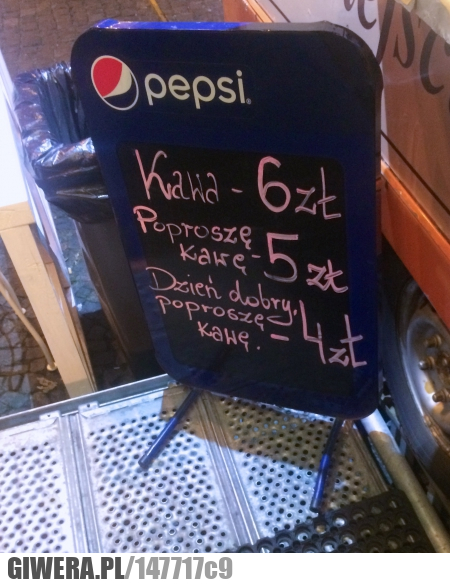 pepsi
Kawa - 6 zł
Poproszę
kawę - 5 zł
Dzień dobry,
poproszę
kawę. - 4 zł
GIWERA.PL/147717c9